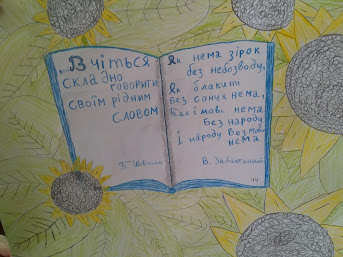 „Вчіться
складно
говорити
своїм рідним
словом
Як нема зірок
без небозводу,
Як блакиті
без сонця нема,
Так і мови нема
без народу
і народу без мови
нема
В. Забаштанський